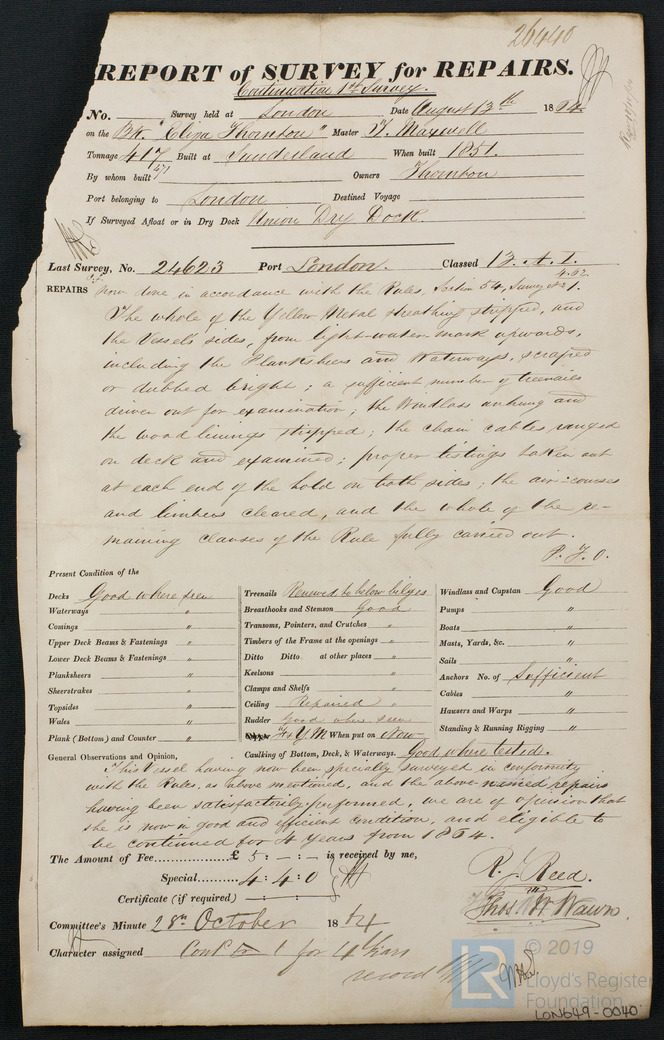 26440
REPORT of SURVEY for REPAIRS.
Continuation 1st Survey.
No. Survey held at London Date August 13th 1864
on the Bk. "Eliza Thornton" Master J. Maxwell
Tonnage 417 Built at Sunderland When built 1851.
By whom built Owners Thornton
Port belonging to London Destined Voyage
If Surveyed Afloat or in Dry Dock Union Dry Dock.
Last Survey, No. 24623 Port London. Classed 12. A. 1.
4.62
REPAIRS now done in accordance with the Rules, Section 54, Survey No 1.
The whole of the Yellow Metal sheathing stripped, and
the Vessels sides, from light-water-mark upwards,
including the Planksheers and Waterways, scraped
or dubbed bright; a sufficient number of treenails
driven out for examination; the Windlass unhung and
the wood linings stripped; the chain cables ranged
on deck and examined; proper listings taken out
at each end of the hold on both sides; the air-courses
and limbers cleared, and the whole of the re-
maining clauses of the Rule fully carried out.
P. T. O.
Present Condition of the
Decks Good where seen
Waterways "
Comings "
Upper Deck Beams & Fastenings "
Lower Deck Beams & Fastenings "
Planksheers "
Sheerstrakes "
Topsides "
Wales "
Plank (Bottom) and Counter "
Treenails Renewed to below bilges
Breasthooks and Stemson Good
Transoms, Pointers, and Crutches "
Timbers of the Frame at the openings "
Ditto Ditto at other places "
Keelsons "
Clamps and Shelfs "
Ceiling Repaired "
Rudder Good where seen
Y M When put on Now
Caulking of Bottom, Deck, & Waterways. Good where tested.
Windlass and Capstan Good
Pumps "
Boats "
Masts, Yards, &c. "
Sails "
Anchors No. of Sufficient
Cables "
Hawsers and Warps "
Standing & Running Rigging "
General Observations and Opinion,
This Vessel having now been specially surveyed in conformity
with the Rules, as above mentioned, and the above named repairs
having been satisfactorily performed, we are of opinion that
she is now in good and efficient condition, and eligible to
be continued for 4 Years from 1864.
The Amount of Fee £ 5 : - : - is received by me,
Special 4 : 4 : 0
Certificate (if required) : :
R. J. Reed.
Thos W. Wawn.
Committee's Minute 28th October 1864
Character assigned Cont 1 for 4 Years
record
LR © 2019
Lloyd's Register
Foundation
LON649-0040